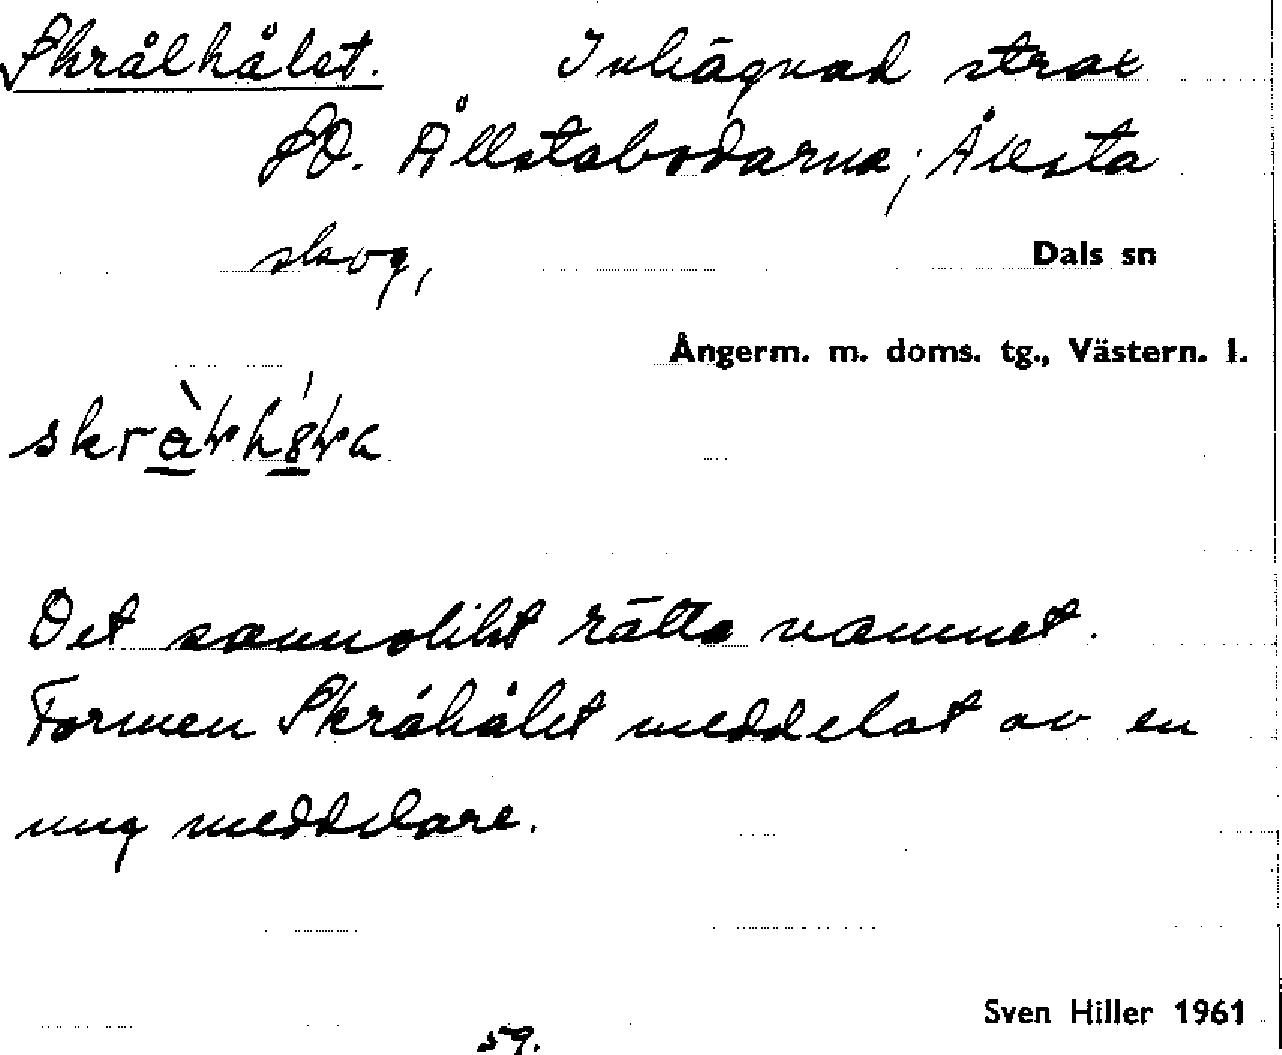 Skrålhålet. Inhägnad strax
SO. Ållstabodarna; Ållsta
skog,
Dals sn
Ångerm. m. doms. tg., Västern. l.
Det sannolikt rätta namnet.
Formen Skråhålet meddelat av en
ung meddelare.
Sven Hiller 1961
59.